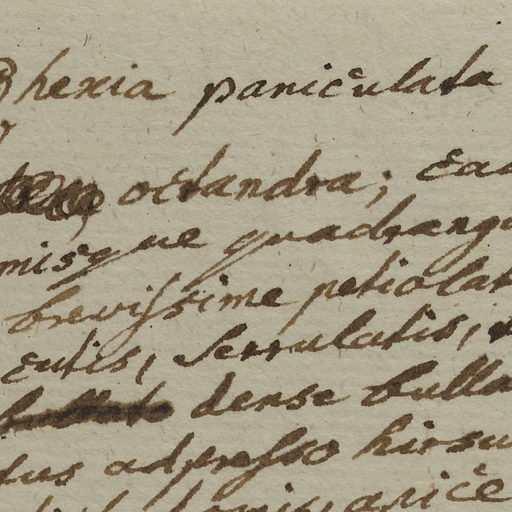 Rhexia paniculata
octandra; cau
misque quadrang
brevissime petiolat
cutis, serrulatis,
dense bulla
tus adpresso hirsu
apice